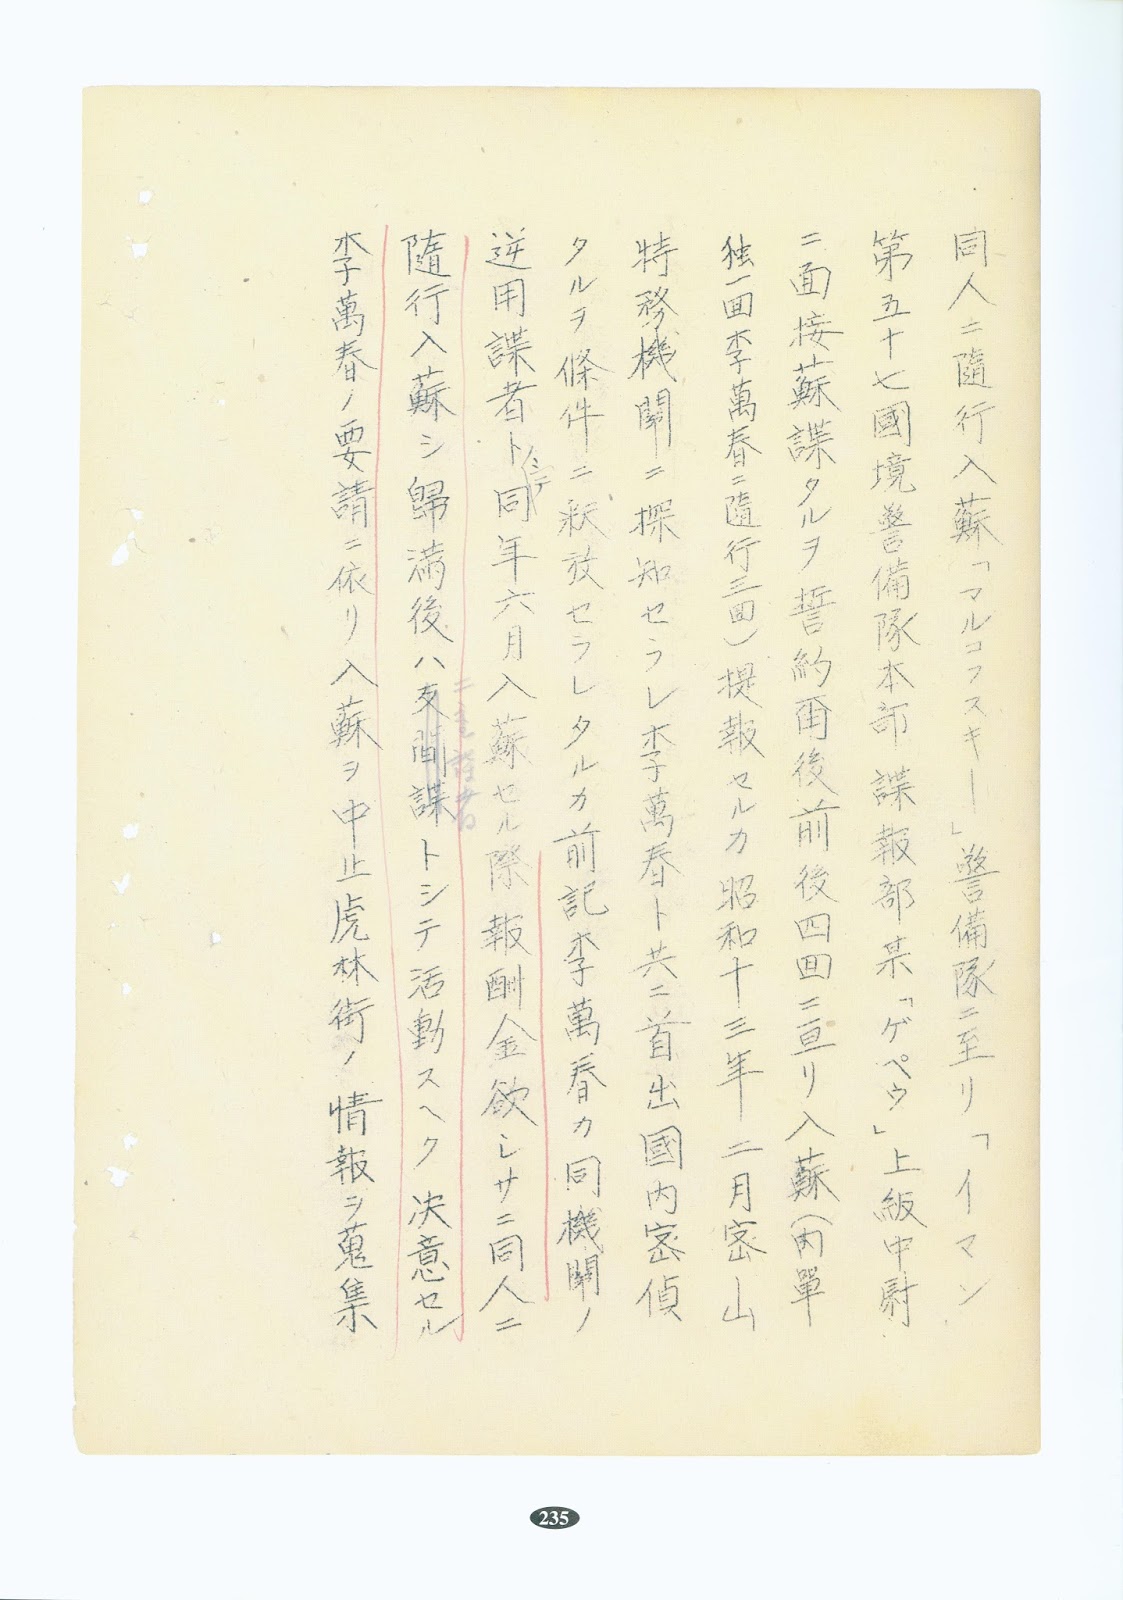 同人ニ隨行入蘇「マルコフスキー」警備隊ニ至リ「イマン
第五十七國境警備隊本部諜報部某「ゲペウ」上級中尉
ニ面接蘇諜タルヲ誓約爾後前後四回ニ亘リ入蘇(內單
独一回李萬春ニ隨行三回)提報セルカ昭和十三年二月密山
特務機關ニ探知セラレ李萬春ト共ニ首出國內密偵
タルヲ條件ニ釈放セラレタルカ前記李萬春カ同機關ノ
逆用諜者トシテ同年六月入蘇セル際報酬金欲シサニ同人ニ
隨行入蘇シ歸満後ハ友間諜トシテ活動スヘク決意セル
李萬春ノ要請ニ依リ入蘇ヲ中止虎林街ノ情報ヲ蒐集
235